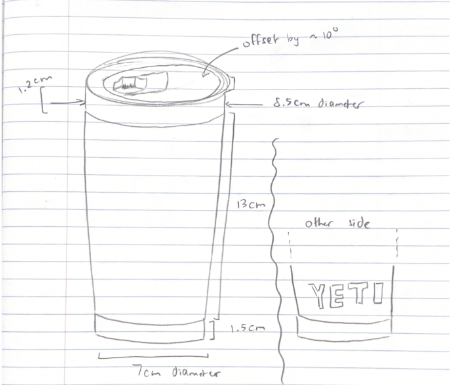 offset by ~ 10°
1.2cm
8.5cm diameter
13cm
other side
YETI
1.5cm
7cm diameter